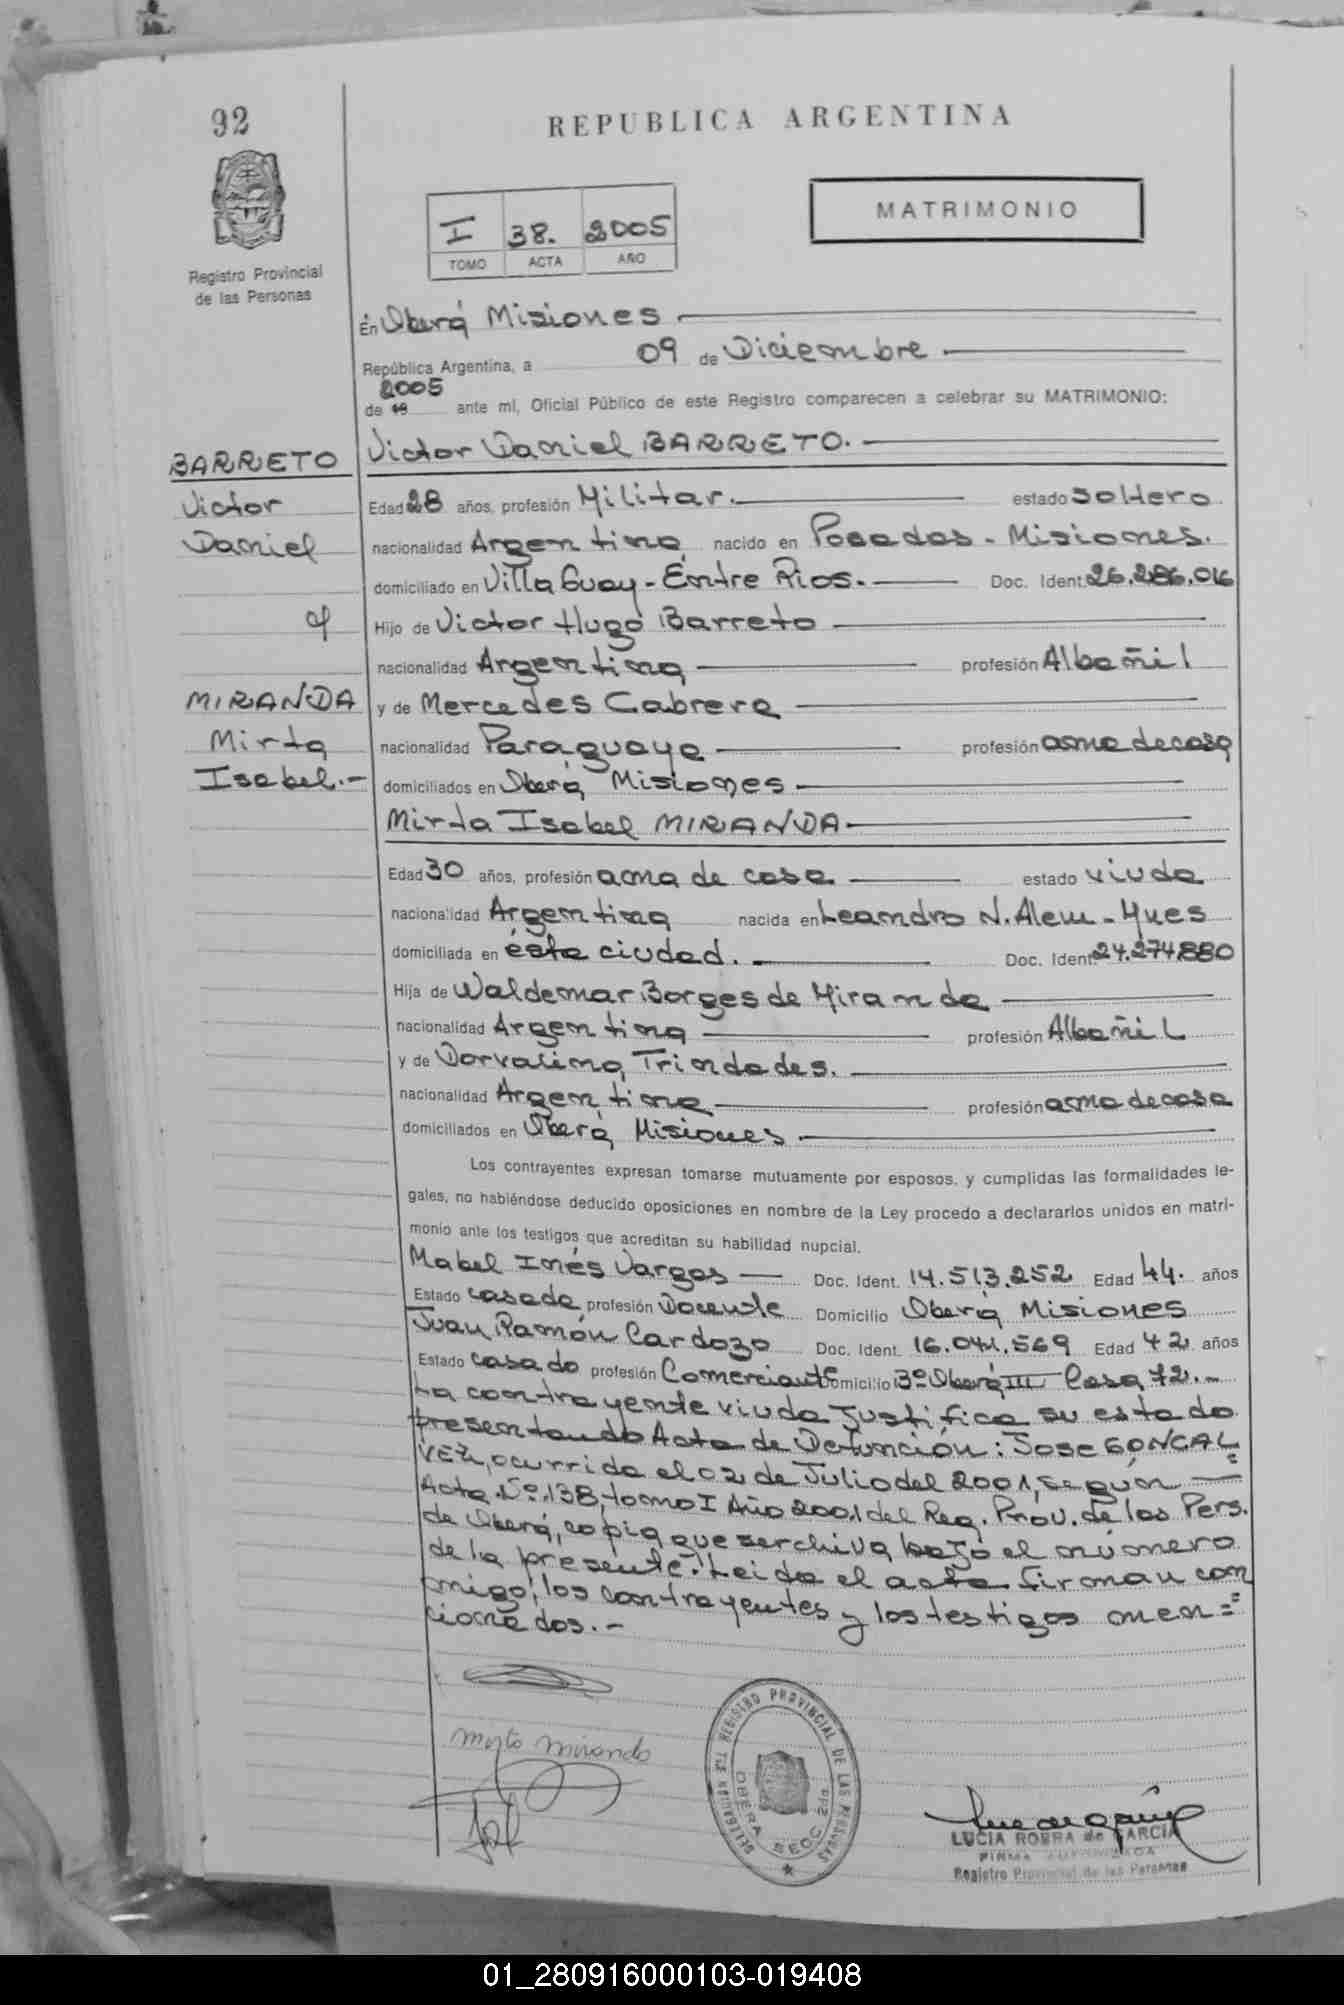 92
REPUBLICA ARGENTINA
Registro Provincial
de las Personas
I 38. 2005
TOMO ACTA AÑO
MATRIMONIO
En Oberá Misiones
República Argentina, a 09 de Diciembre
2005
de 19 ante mí, Oficial Público de este Registro comparecen a celebrar su MATRIMONIO:
Victor Daniel BARRETO.
BARRETO
Victor
Daniel
c/
MIRANDA
Mirta
Isabel.-
Edad 28 años, profesión Militar. estado soltero
nacionalidad Argentina nacido en Posadas - Misiones.
domiciliado en Villa Guay - Entre Rios. Doc. Ident. 26.286.016
Hijo de Victor Hugo Barreto
nacionalidad Argentina profesión Albañil
y de Mercedes Cabrera
nacionalidad Paraguaya profesión ama de casa
domiciliados en Oberá Misiones
Mirta Isabel MIRANDA
Edad 30 años, profesión ama de casa estado viuda
nacionalidad Argentina nacida en Leandro N. Alem - Mnes
domiciliada en ésta ciudad. Doc. Ident. 24.274.880
Hija de Waldemar Borges de Miranda
nacionalidad Argentina profesión Albañil
y de Dorvalina Trindades.
nacionalidad Argentina profesión ama de casa
domiciliados en Oberá Misiones
Los contrayentes expresan tomarse mutuamente por esposos, y cumplidas las formalidades le-
gales, no habiéndose deducido oposiciones en nombre de la Ley procedo a declararlos unidos en matri-
monio ante los testigos que acreditan su habilidad nupcial.
Mabel Inés Vargas Doc. Ident. 14.513.252 Edad 44. años
Estado casada profesión Docente Domicilio Oberá Misiones
Juan Ramón Cardozo Doc. Ident. 16.041.569 Edad 42 años
Estado casado profesión Comerciante Domicilio Bº Oberá III Casa 72.-
La contrayente viuda justifica su estado
presentando Acta de Defunción: Jose GONCAL=
VEZ, ocurrida el 02 de Julio del 2001, según
Acta Nº 138, tomo I Año 2001 del Reg. Prov. de las Pers.
de Oberá, copia que se archiva bajo el número
de la presente. Leida el acta firman con
migo, los contrayentes y los testigos men=
cionados.-
Mirta Miranda
DELEGACION REGISTRO PROVINCIAL DE LAS PERSONAS
OBERA SECC. 2da.
LUCIA ROBRA de GARCIA
FIRMA AUTORIZADA
Registro Provincial de las Personas
01_280916000103-019408